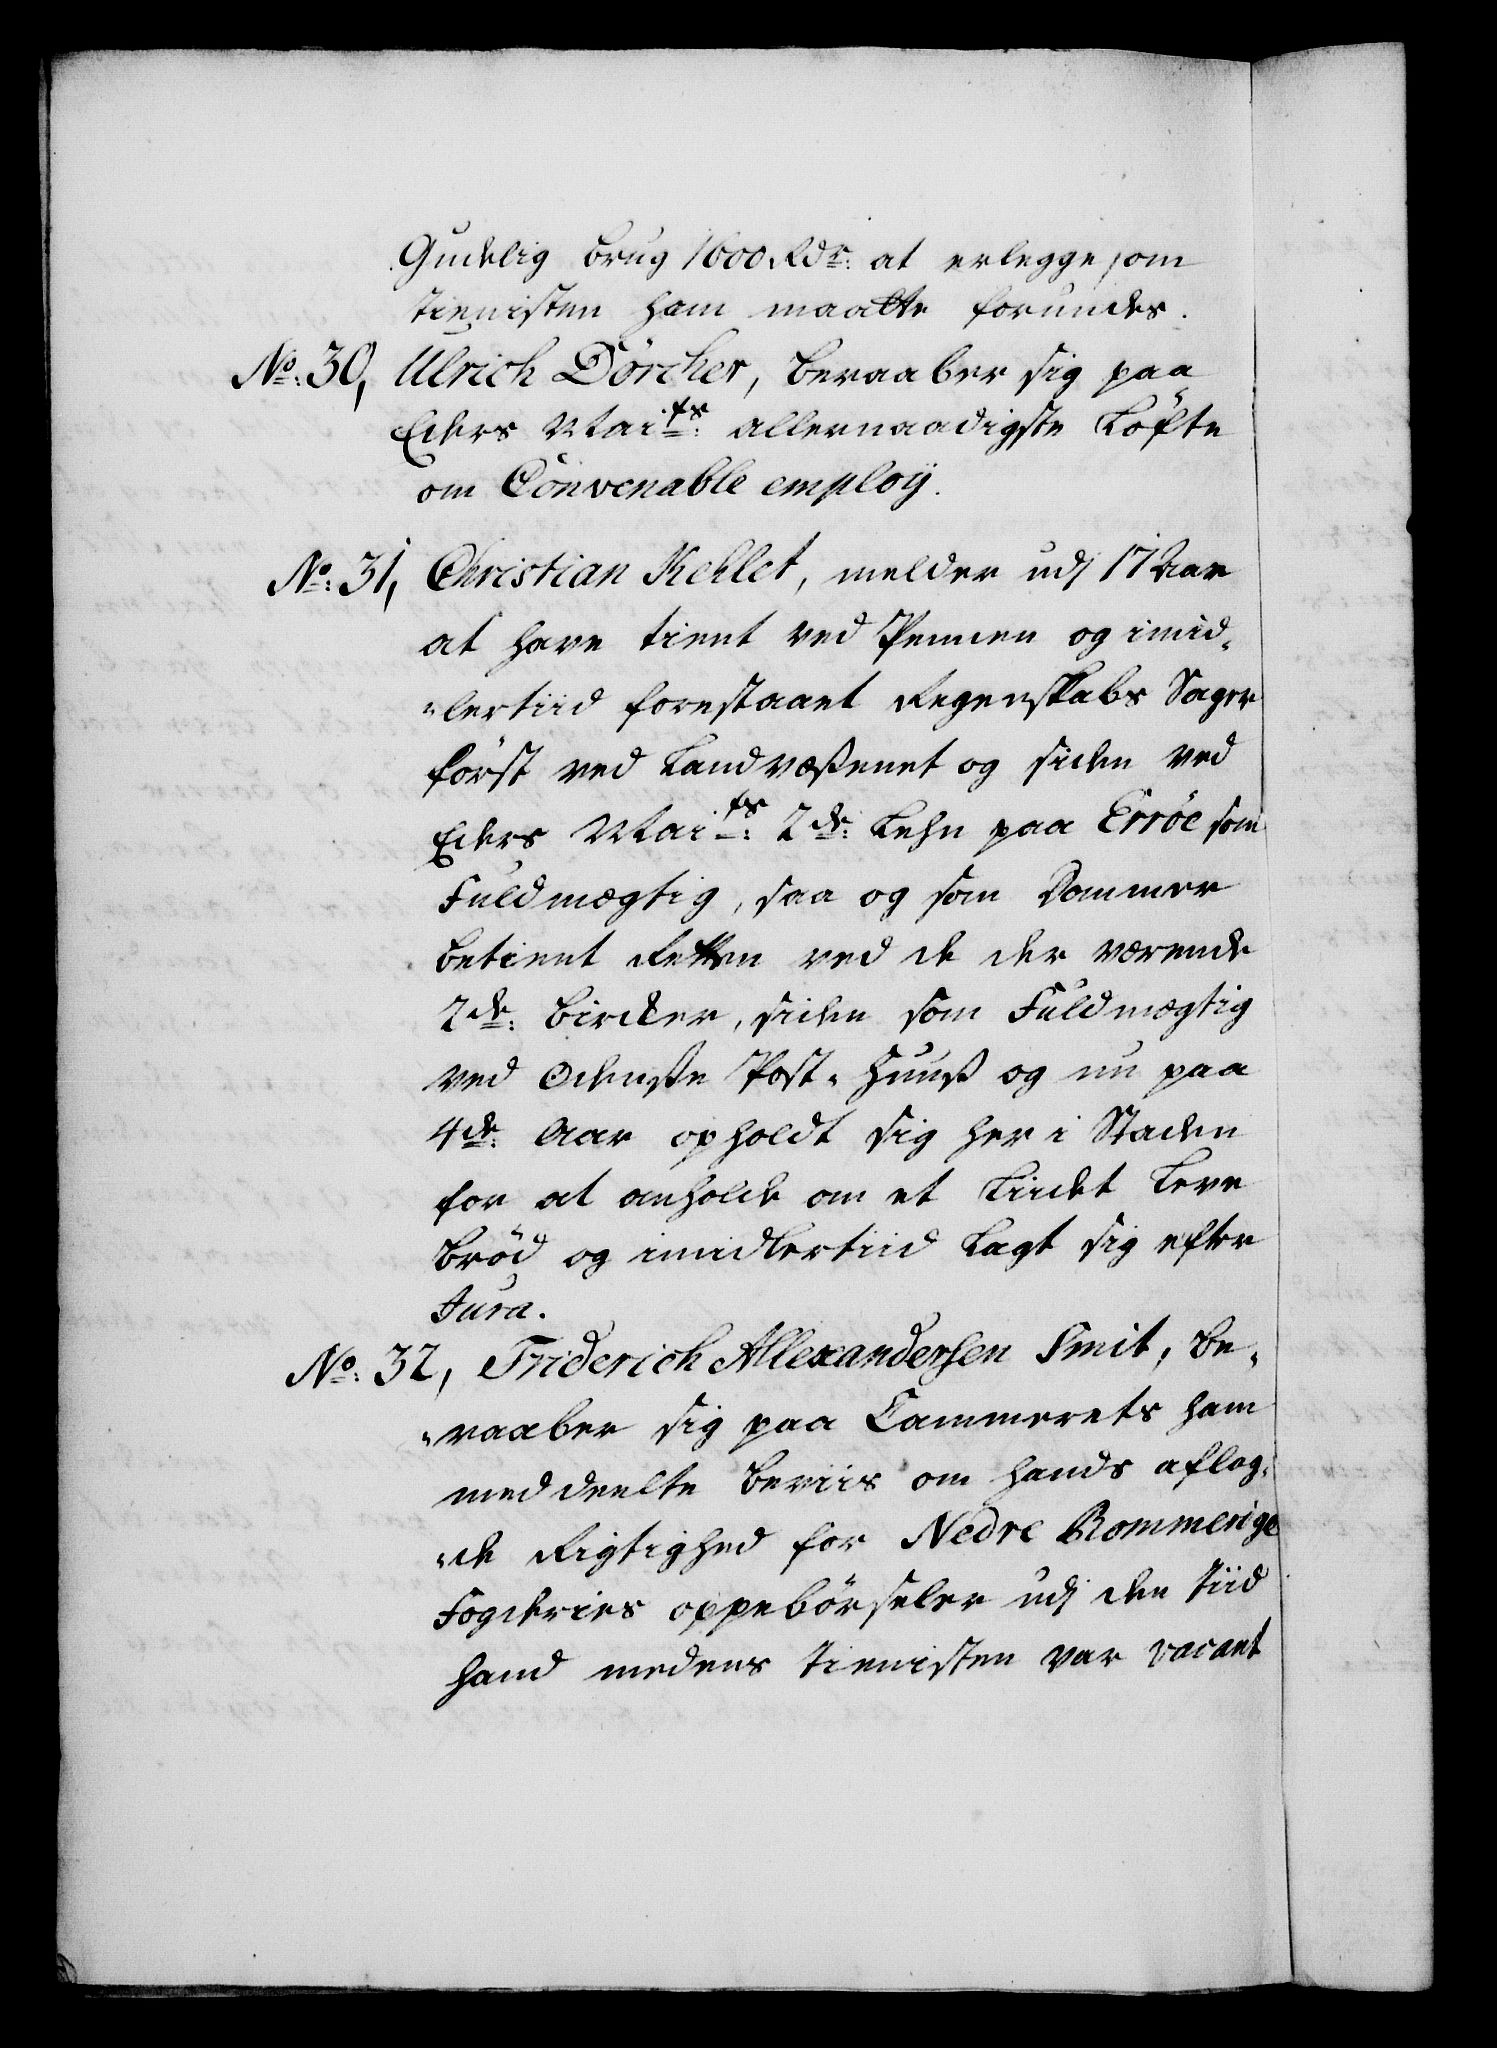 Gudelig brug 1600 Rdr: at erlegge som
tienisten ham maatte forundes.
No: 30, Ulrich Dörcher, beraaber sig paa
Eders Maits: allernaadigste Löfte
om Convenable employ.
No: 31, Christian Kehlet, melder udj 17 Aar
at have tient ved Pennen og imid„
„lertiid forestaaet Regenskabs Sager
först ved Landvæßenet og siden ved
Eders Maits: 2de: Lehn paa Erröe som
Fuldmægtig, saa og som Dommer
betient Retten ved de der værende
2de: Bircker, siden som Fuldmægtig
ved Odensse Post„Huuß og nu paa
4de: Aar opholdt sig her i Staden
for at anholde om et Lidet Leve
Bröd og imidlertiid Lagt sig efter
Jura.
No: 32, Friderich Allexandersen Smit, be„
„raaber sig paa Cammerets ham
meddeelte Beviis om hands aflag„
„de Rigtighed for Nedre Rommerige
Fogderies oppebörseler udj den Tiid
hand medens tienisten var vacant